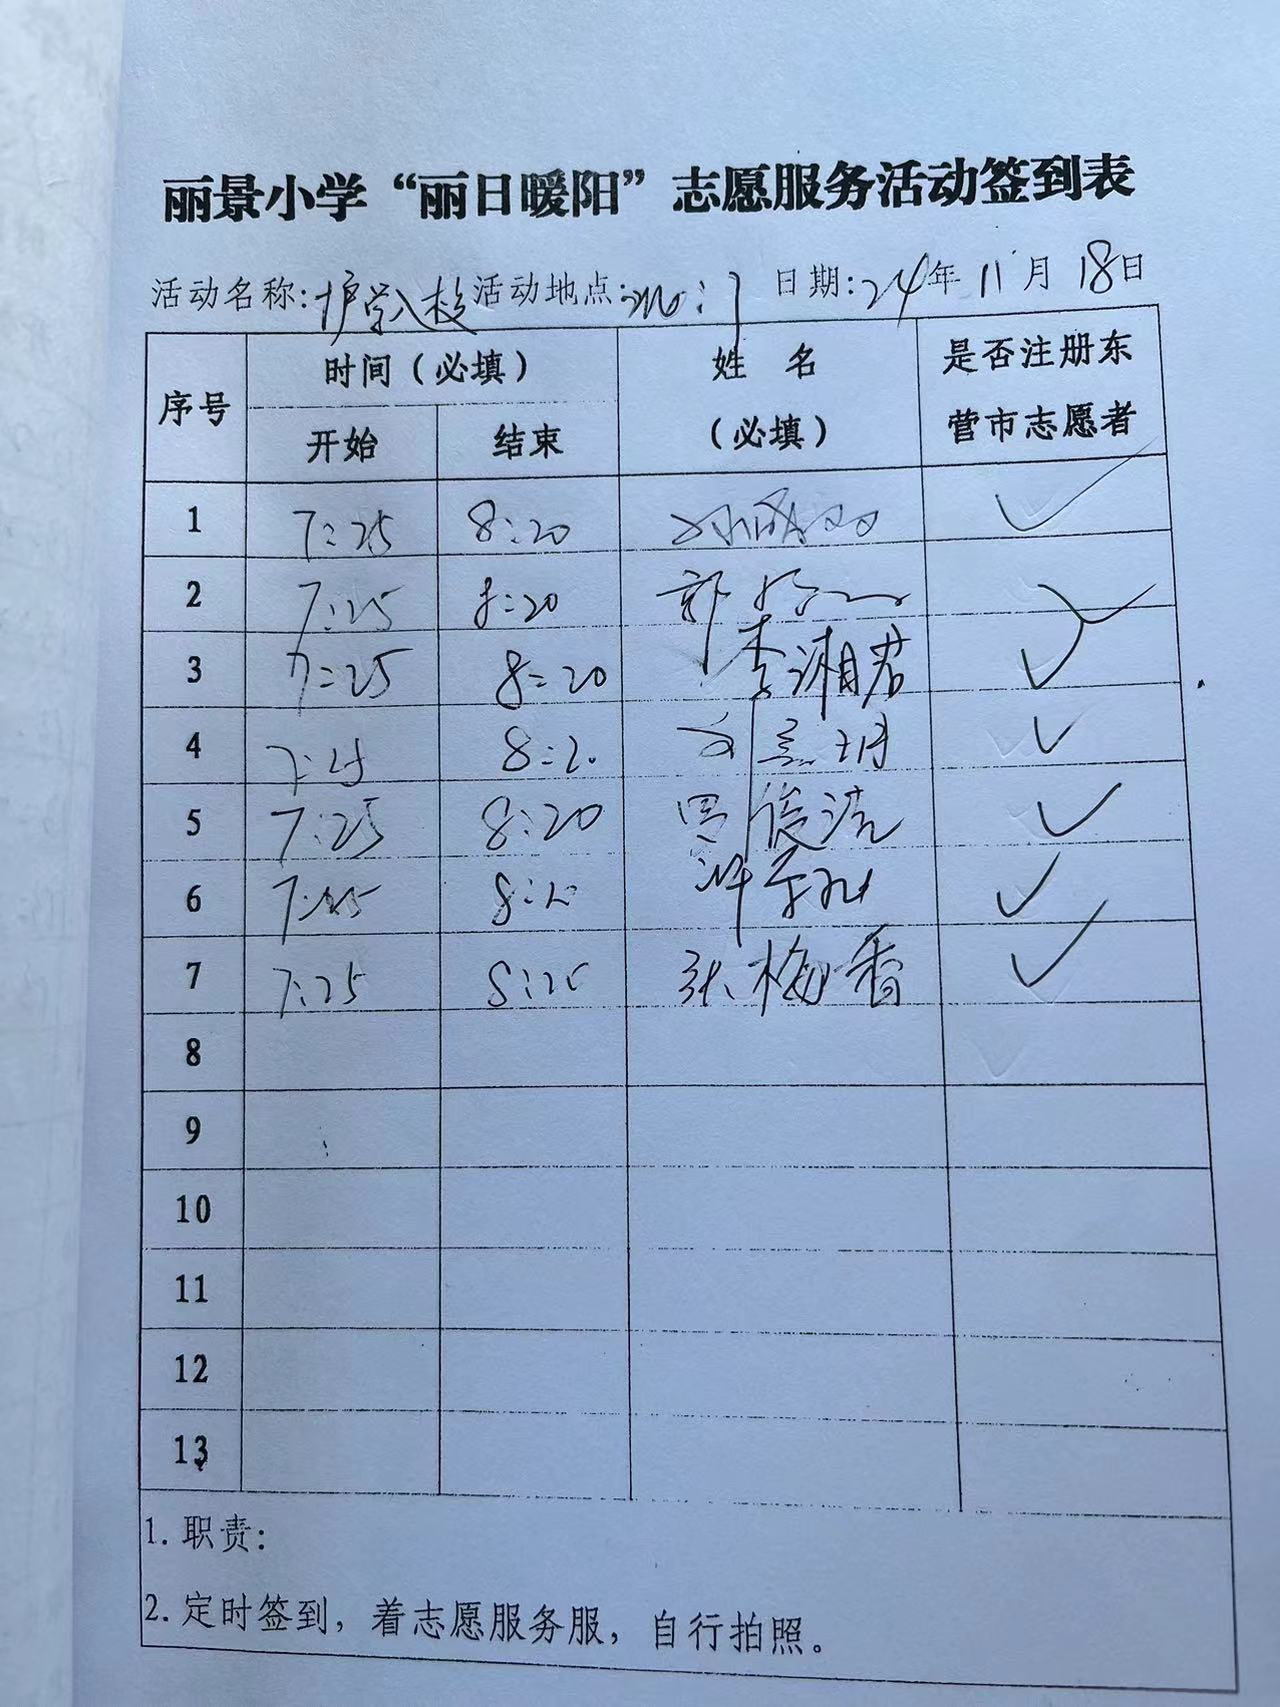 丽景小学“丽日暖阳”志愿服务活动签到表
活动名称:护学入校 活动地点: 日期:24年11月18日
序号 时间（必填） 姓 名（必填） 是否注册东营市志愿者
开始 结束
1 7:25 8:20 ✓
2 7:25 8:20 郭 ✓
3 7:25 8:20 李湘君 ✓
4 7:25 8:20 ✓
5 7:25 8:20 俊洁 ✓
6 7:25 8:20 许 ✓
7 7:25 8:20 张梅香 ✓
8
9
10
11
12
13
1.职责:
2.定时签到，着志愿服务服，自行拍照。